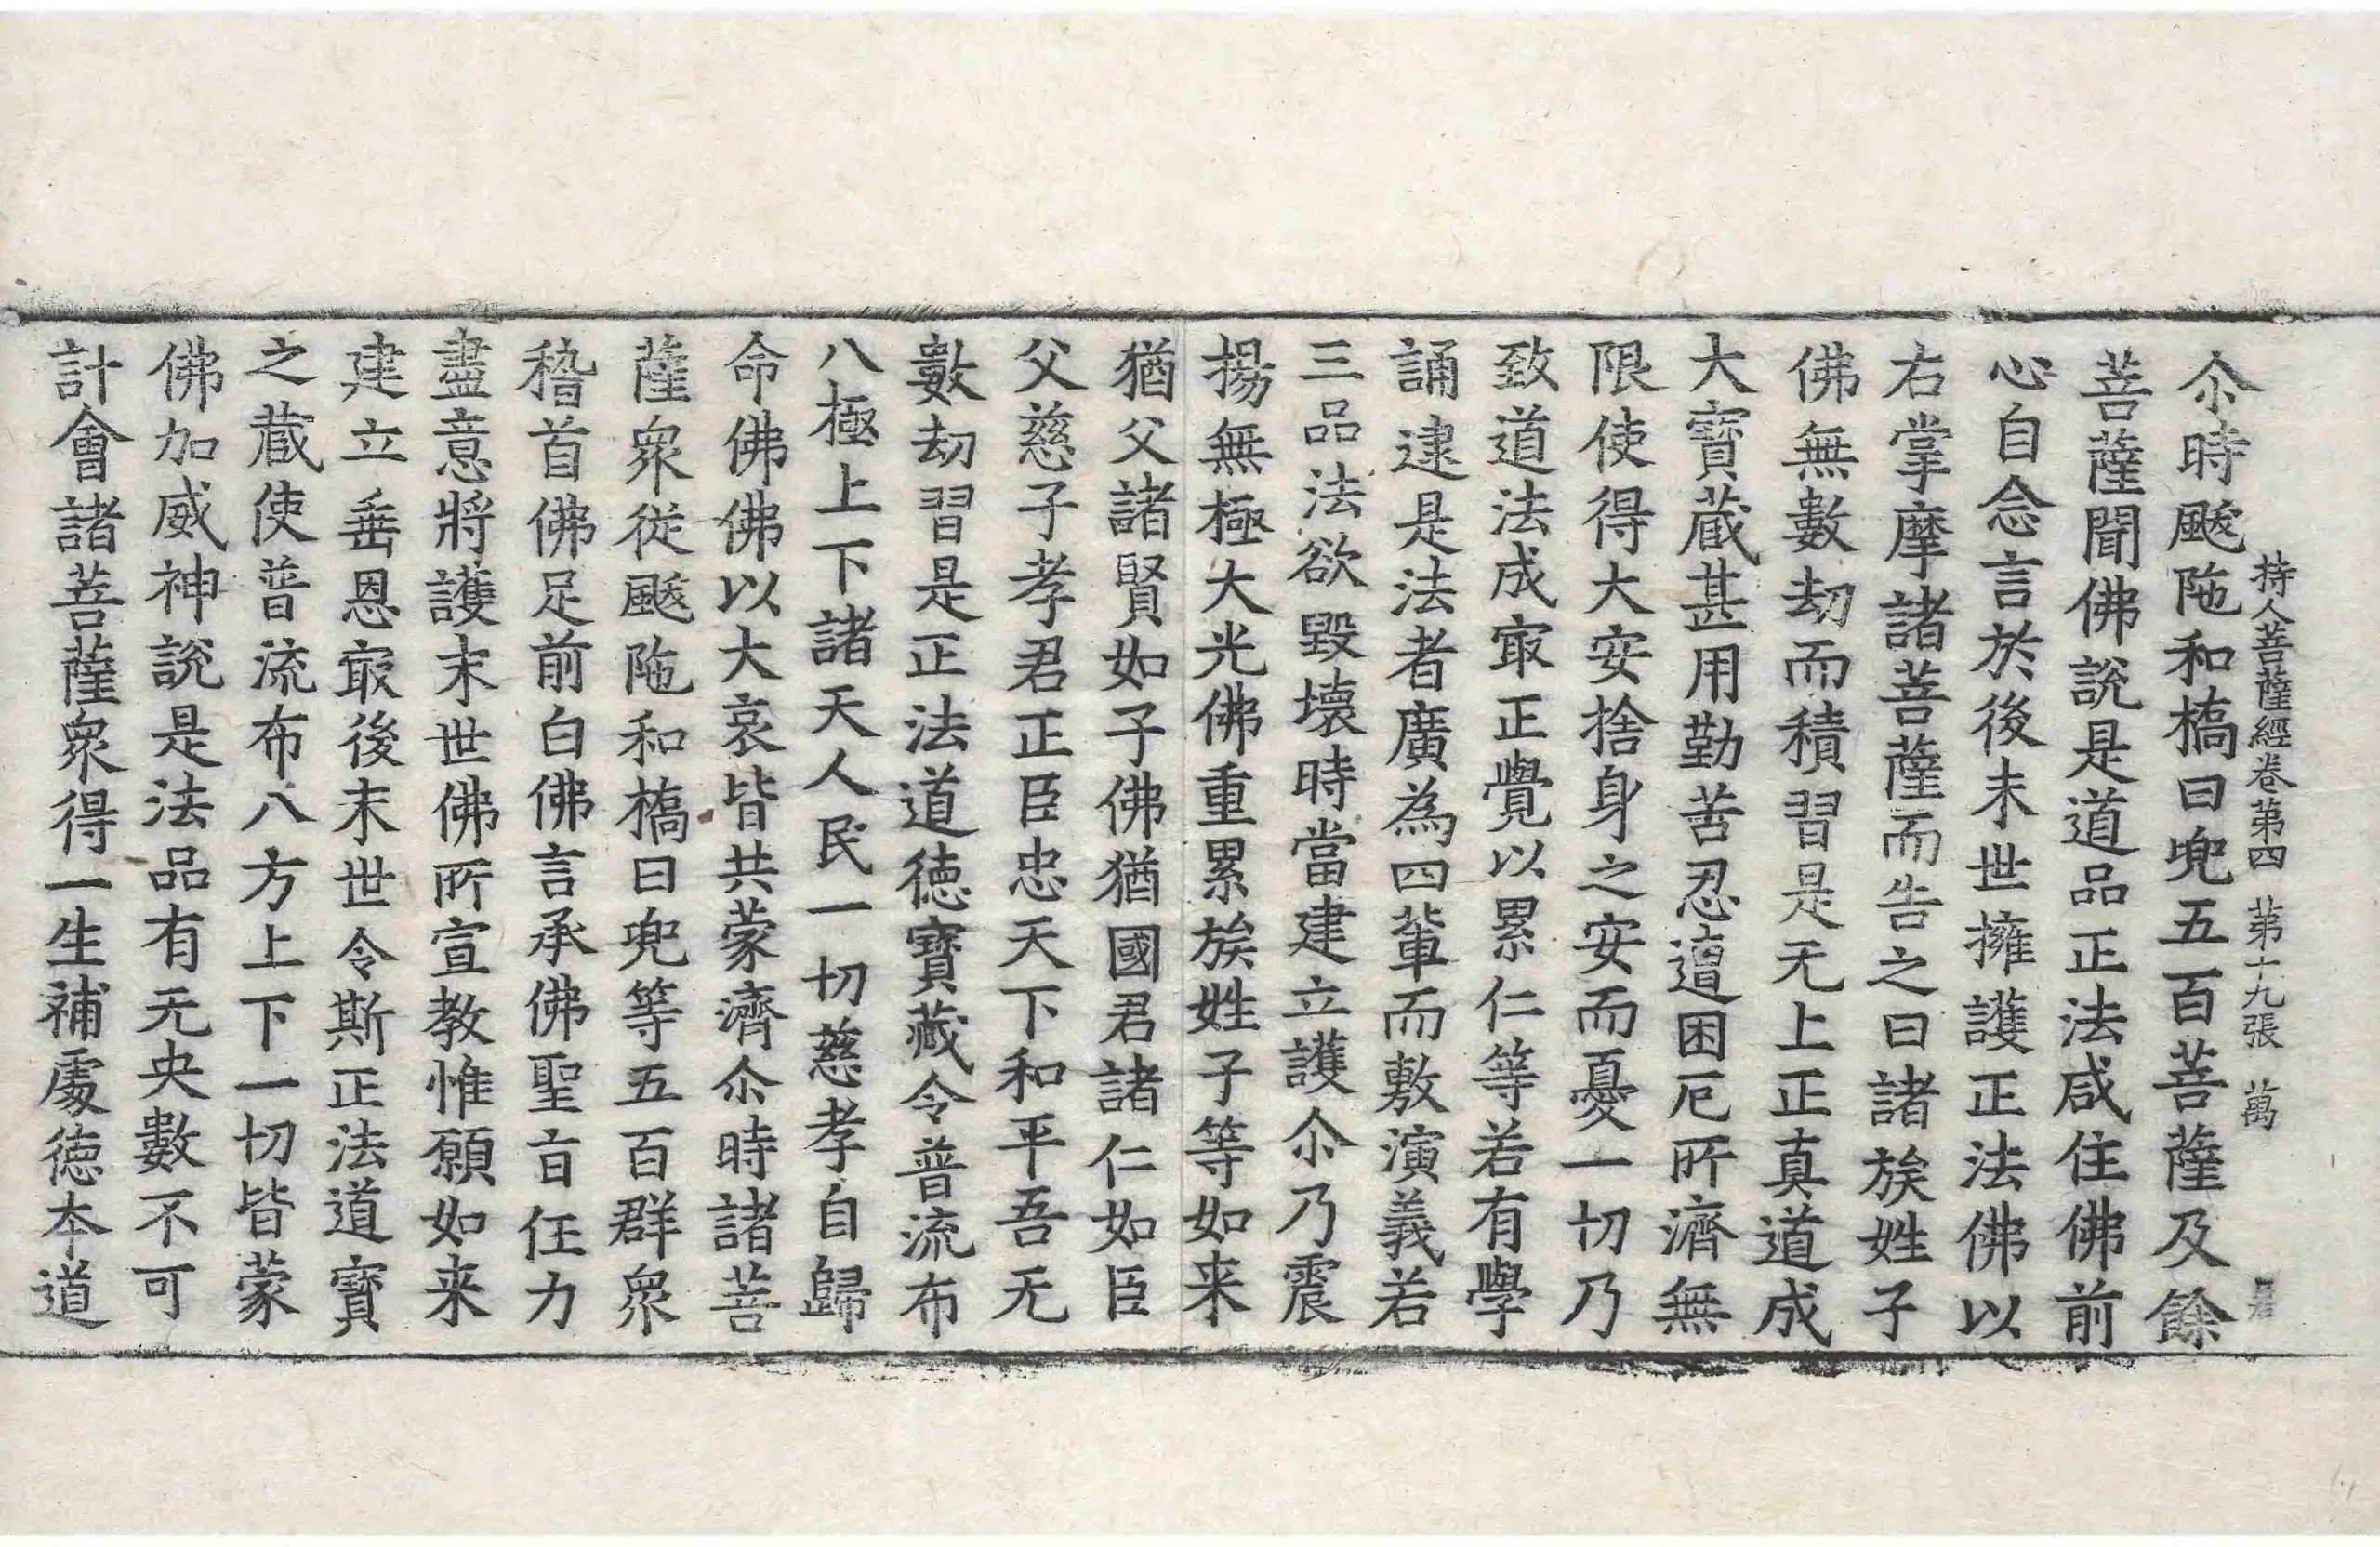 持人菩薩經卷第四 第十九張 萬
尒時颰陁和橋曰兜五百菩薩及餘
菩薩聞佛說是道品正法咸住佛前
心自念言於後末世擁護正法佛以
右掌摩諸菩薩而告之曰諸族姓子
佛無數劫而積習是无上正真道成
大寶蔵甚用勤苦忍邅困厄所濟無
限使得大安捨身之安而憂一切乃
致道法成㝡正覺以累仁等若有學
誦逮是法者廣為四輩而敷演義若
三品法欲毀壞時當建立護尒乃震
揚無極大光佛重累族姓子等如来
猶父諸賢如子佛猶國君諸仁如臣
父慈子孝君正臣忠天下和平吾无
數劫習是正法道德寶藏令普流布
八極上下諸天人民一切慈孝自歸
命佛佛以大哀皆共蒙濟尒時諸菩
薩衆從颰陁和橋曰兜等五百群衆
稽首佛足前白佛言承佛聖旨任力
盡意將護末世佛所宣教惟願如来
建立垂恩㝡後末世令斯正法道寶
之蔵使普流布八方上下一切皆蒙
佛加威神說是法品有无央數不可
計會諸菩薩衆得一生補處德本道